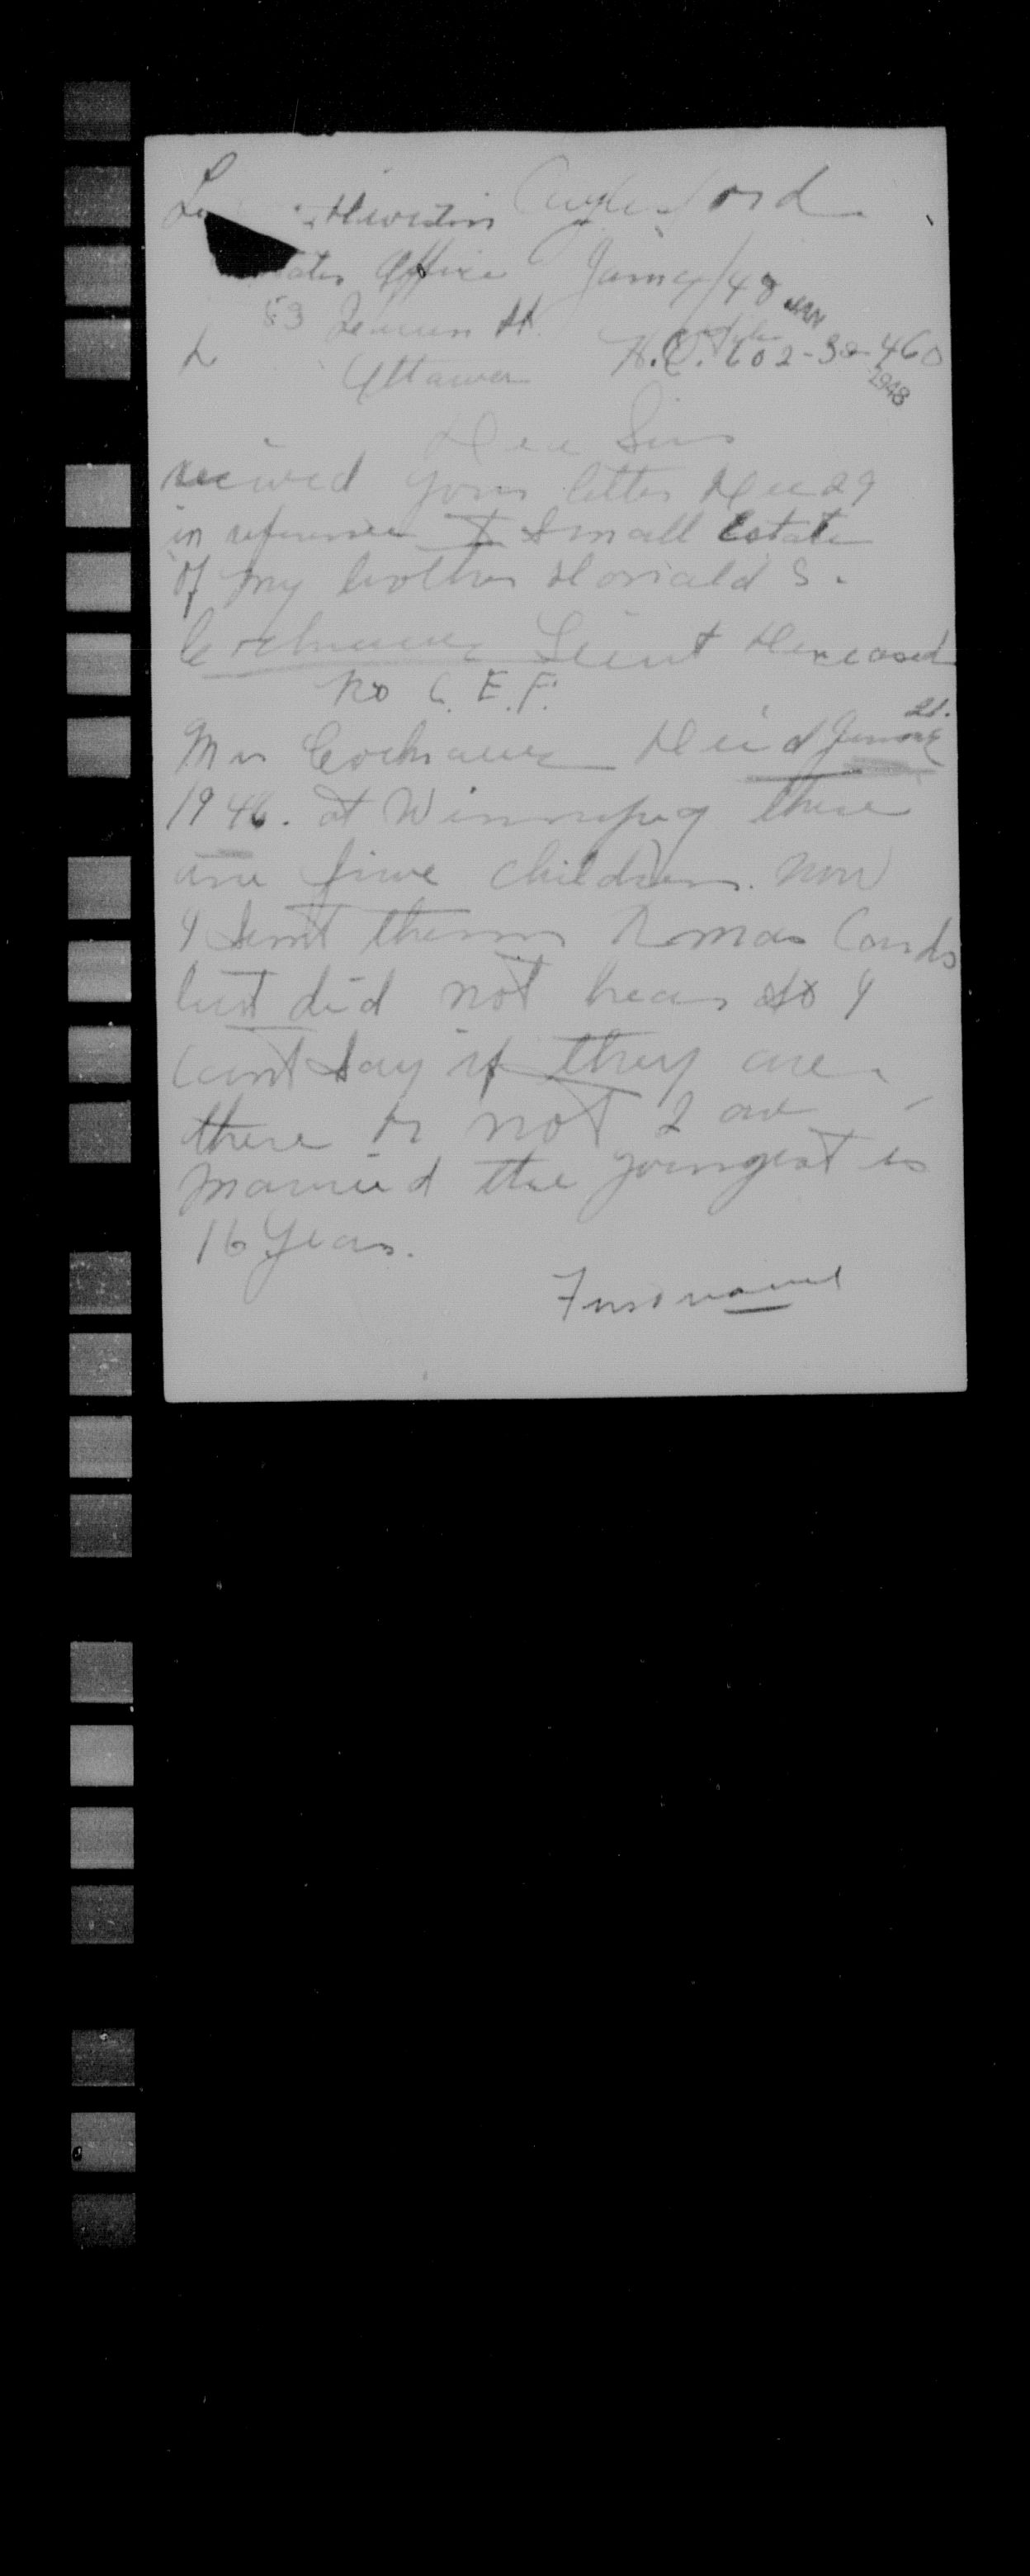 Division
Office Jan 9/48
JAN
53 St.
Ottawa H.Q. 602-32-460
1948
Dear Sirs
recived your letter Dec 29
in reference to Small Estate
of my brother Donald S.
Cochrane Lieut Deceased
No C.E.F.
21.
Mrs Cochrane Died June
1946. at Winnipeg there
are five children now
I sent them Xmas Cards
but did not hear so I
cant say if they are
there or not 2 are
married the youngest is
16 years.